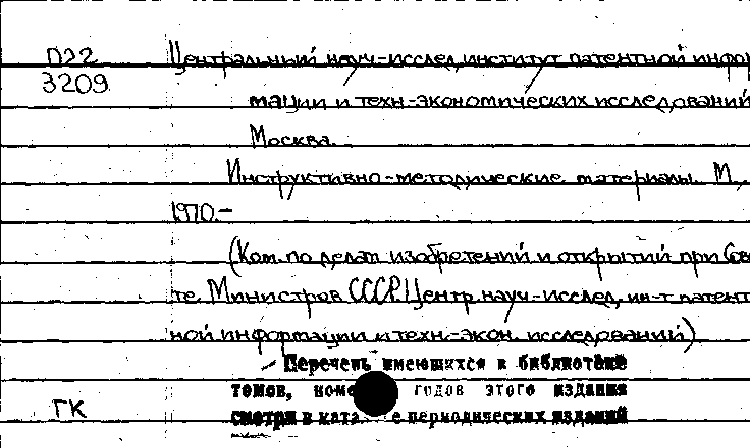 П22
3209
Центральный науч-исслед. институт патентной инфор
мации и техн-экономических исследований
Москва.
Инструктивно-методические материалы. М.,
1970.-
(Ком. по делам изобретений и открытий при Сове
те Министров СССР. Центр. науч-исслед. ин-т патент
ной информации и техн-экон. исследований)
Перечень имеющихся в библиотеке
томов, номе годов этого издания
смотри в ката е периодических изданий
ГК